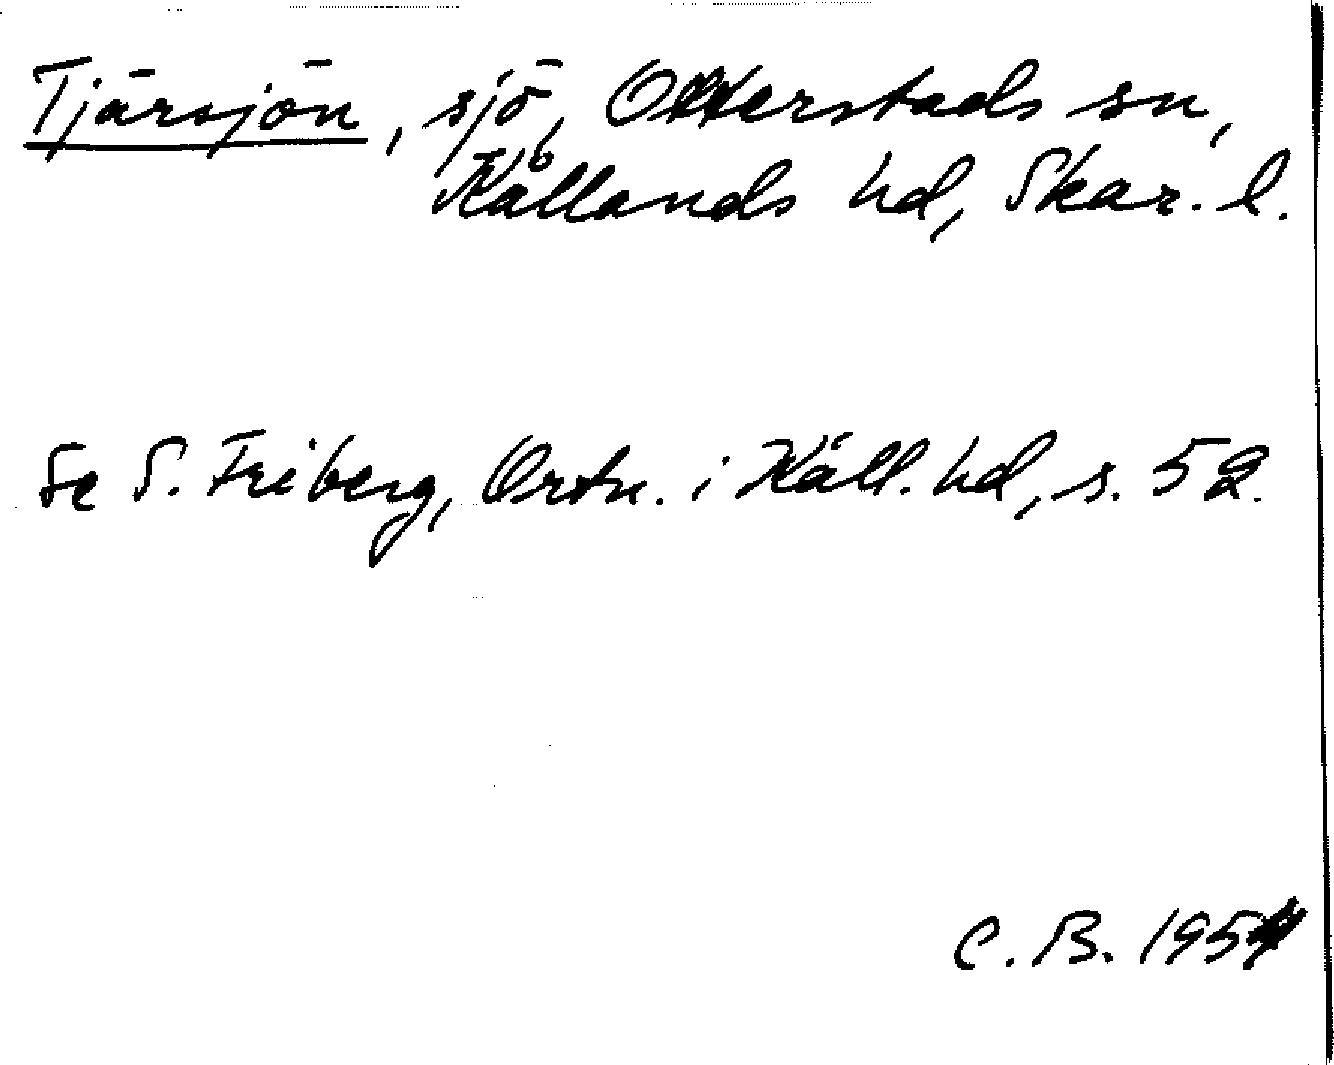 Tjärsjön, sjö, Otterstads sn,
Kållands hd, Skar. l.
Se S. Friberg, Ortn. i Kåll. hd, s. 52.
C. B. 1954